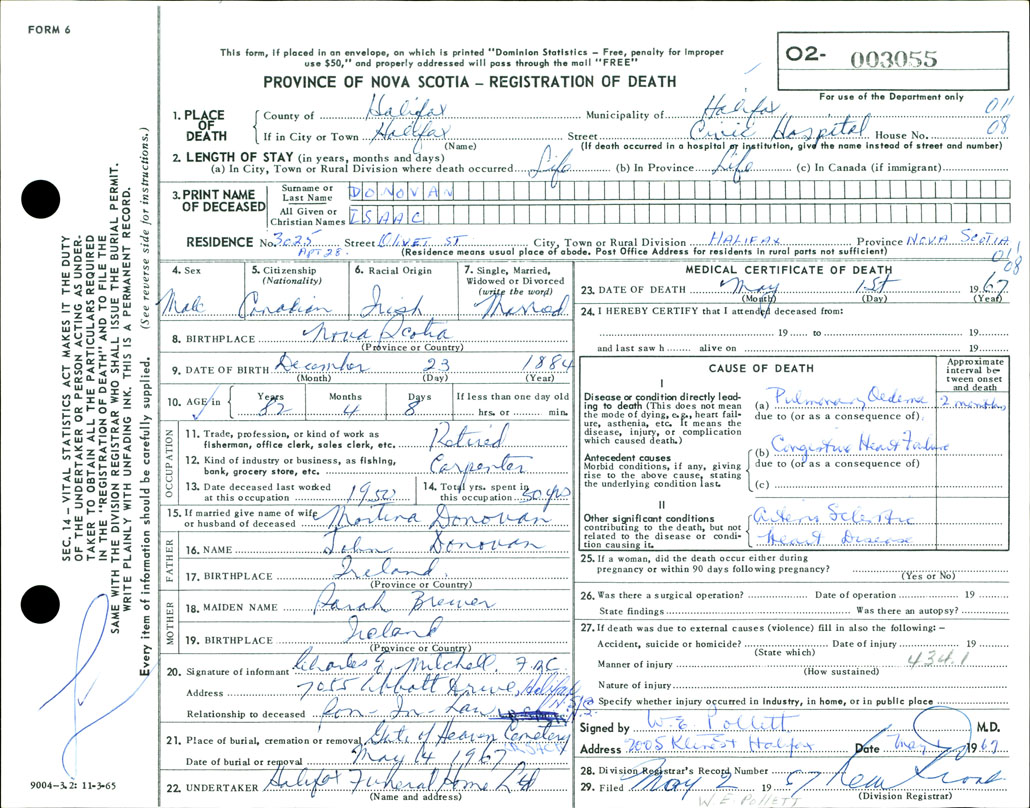 FORM 6
This form, if placed in an envelope, on which is printed "Dominion Statistics – Free, penalty for improper
use $50," and properly addressed will pass through the mail "FREE"
PROVINCE OF NOVA SCOTIA – REGISTRATION OF DEATH
02- 003055
For use of the Department only
1. PLACE OF DEATH
County of Halifax Municipality of Halifax 011
If in City or Town Halifax Street Civic Hospital House No. 08
(Name) (If death occurred in a hospital or institution, give the name instead of street and number)
2. LENGTH OF STAY (in years, months and days)
(a) In City, Town or Rural Division where death occurred Life (b) In Province Life (c) In Canada (if immigrant)
3. PRINT NAME OF DECEASED
Surname or Last Name DONOVAN
All Given or Christian Names ISAAC
RESIDENCE No. 3025 Street OLIVET ST City, Town or Rural Division HALIFAX Province NOVA SCOTIA
APT 28. (Residence means usual place of abode. Post Office Address for residents in rural parts not sufficient)
08
4. Sex Male
5. Citizenship (Nationality) Canadian
6. Racial Origin Irish
7. Single, Married, Widowed or Divorced (write the word) Married
8. BIRTHPLACE Nova Scotia
(Province or Country)
9. DATE OF BIRTH December 23 1884
(Month) (Day) (Year)
10. AGE in Years 82 Months 4 Days 8 If less than one day old hrs. or min.
OCCUPATION
11. Trade, profession, or kind of work as fisherman, office clerk, sales clerk, etc. Retired
12. Kind of industry or business, as fishing, bank, grocery store, etc. Carpenter
13. Date deceased last worked at this occupation 1950
14. Total yrs. spent in this occupation 50 yrs
15. If married give name of wife or husband of deceased Martina Donovan
FATHER
16. NAME John Donovan
17. BIRTHPLACE Ireland
(Province or Country)
MOTHER
18. MAIDEN NAME Sarah Brewer
19. BIRTHPLACE Ireland
(Province or Country)
20. Signature of informant Charles E. Mitchell
Address 7055 Abbott Drive, Halifax N.S.
Relationship to deceased Son-In-Law
21. Place of burial, cremation or removal Gate of Heaven Cemetery
Date of burial or removal May 1967
22. UNDERTAKER Halifax Funeral Home Ltd
(Name and address)
MEDICAL CERTIFICATE OF DEATH
23. DATE OF DEATH May 1st 1967
(Month) (Day) (Year)
24. I HEREBY CERTIFY that I attended deceased from:
19 to 19
and last saw h alive on 19
CAUSE OF DEATH
Approximate interval between onset and death
I
Disease or condition directly leading to death (This does not mean the mode of dying, e.g., heart failure, asthenia, etc. It means the disease, injury, or complication which caused death.)
(a) Pulmonary Oedema 2 months
due to (or as a consequence of)
Antecedent causes
Morbid conditions, if any, giving rise to the above cause, stating the underlying condition last.
(b) Congestive Heart Failure
due to (or as a consequence of)
(c)
II
Other significant conditions
contributing to the death, but not related to the disease or condition causing it.
Arterio Sclerotic
Heart Disease
25. If a woman, did the death occur either during
pregnancy or within 90 days following pregnancy?
(Yes or No)
26. Was there a surgical operation? Date of operation 19
State findings Was there an autopsy?
27. If death was due to external causes (violence) fill in also the following: –
Accident, suicide or homicide? Date of injury 19
(State which)
Manner of injury 434.1
(How sustained)
Nature of injury
Specify whether injury occurred in Industry, in home, or in public place
Signed by W. E. Pollett M.D.
Address Halifax Date May 1967
28. Division Registrar's Record Number
29. Filed May 2 1967
(Division Registrar)
W E POLLETT
SEC. 14 – VITAL STATISTICS ACT MAKES IT THE DUTY
OF THE UNDERTAKER OR PERSON ACTING AS UNDER-
TAKER TO OBTAIN ALL THE PARTICULARS REQUIRED
IN THE "REGISTRATION OF DEATH" AND TO FILE THE
SAME WITH THE DIVISION REGISTRAR WHO SHALL ISSUE THE BURIAL PERMIT.
WRITE PLAINLY WITH UNFADING INK. THIS IS A PERMANENT RECORD.
Every item of information should be carefully supplied. (See reverse side for instructions.)
9004-3.2: 11-3-65